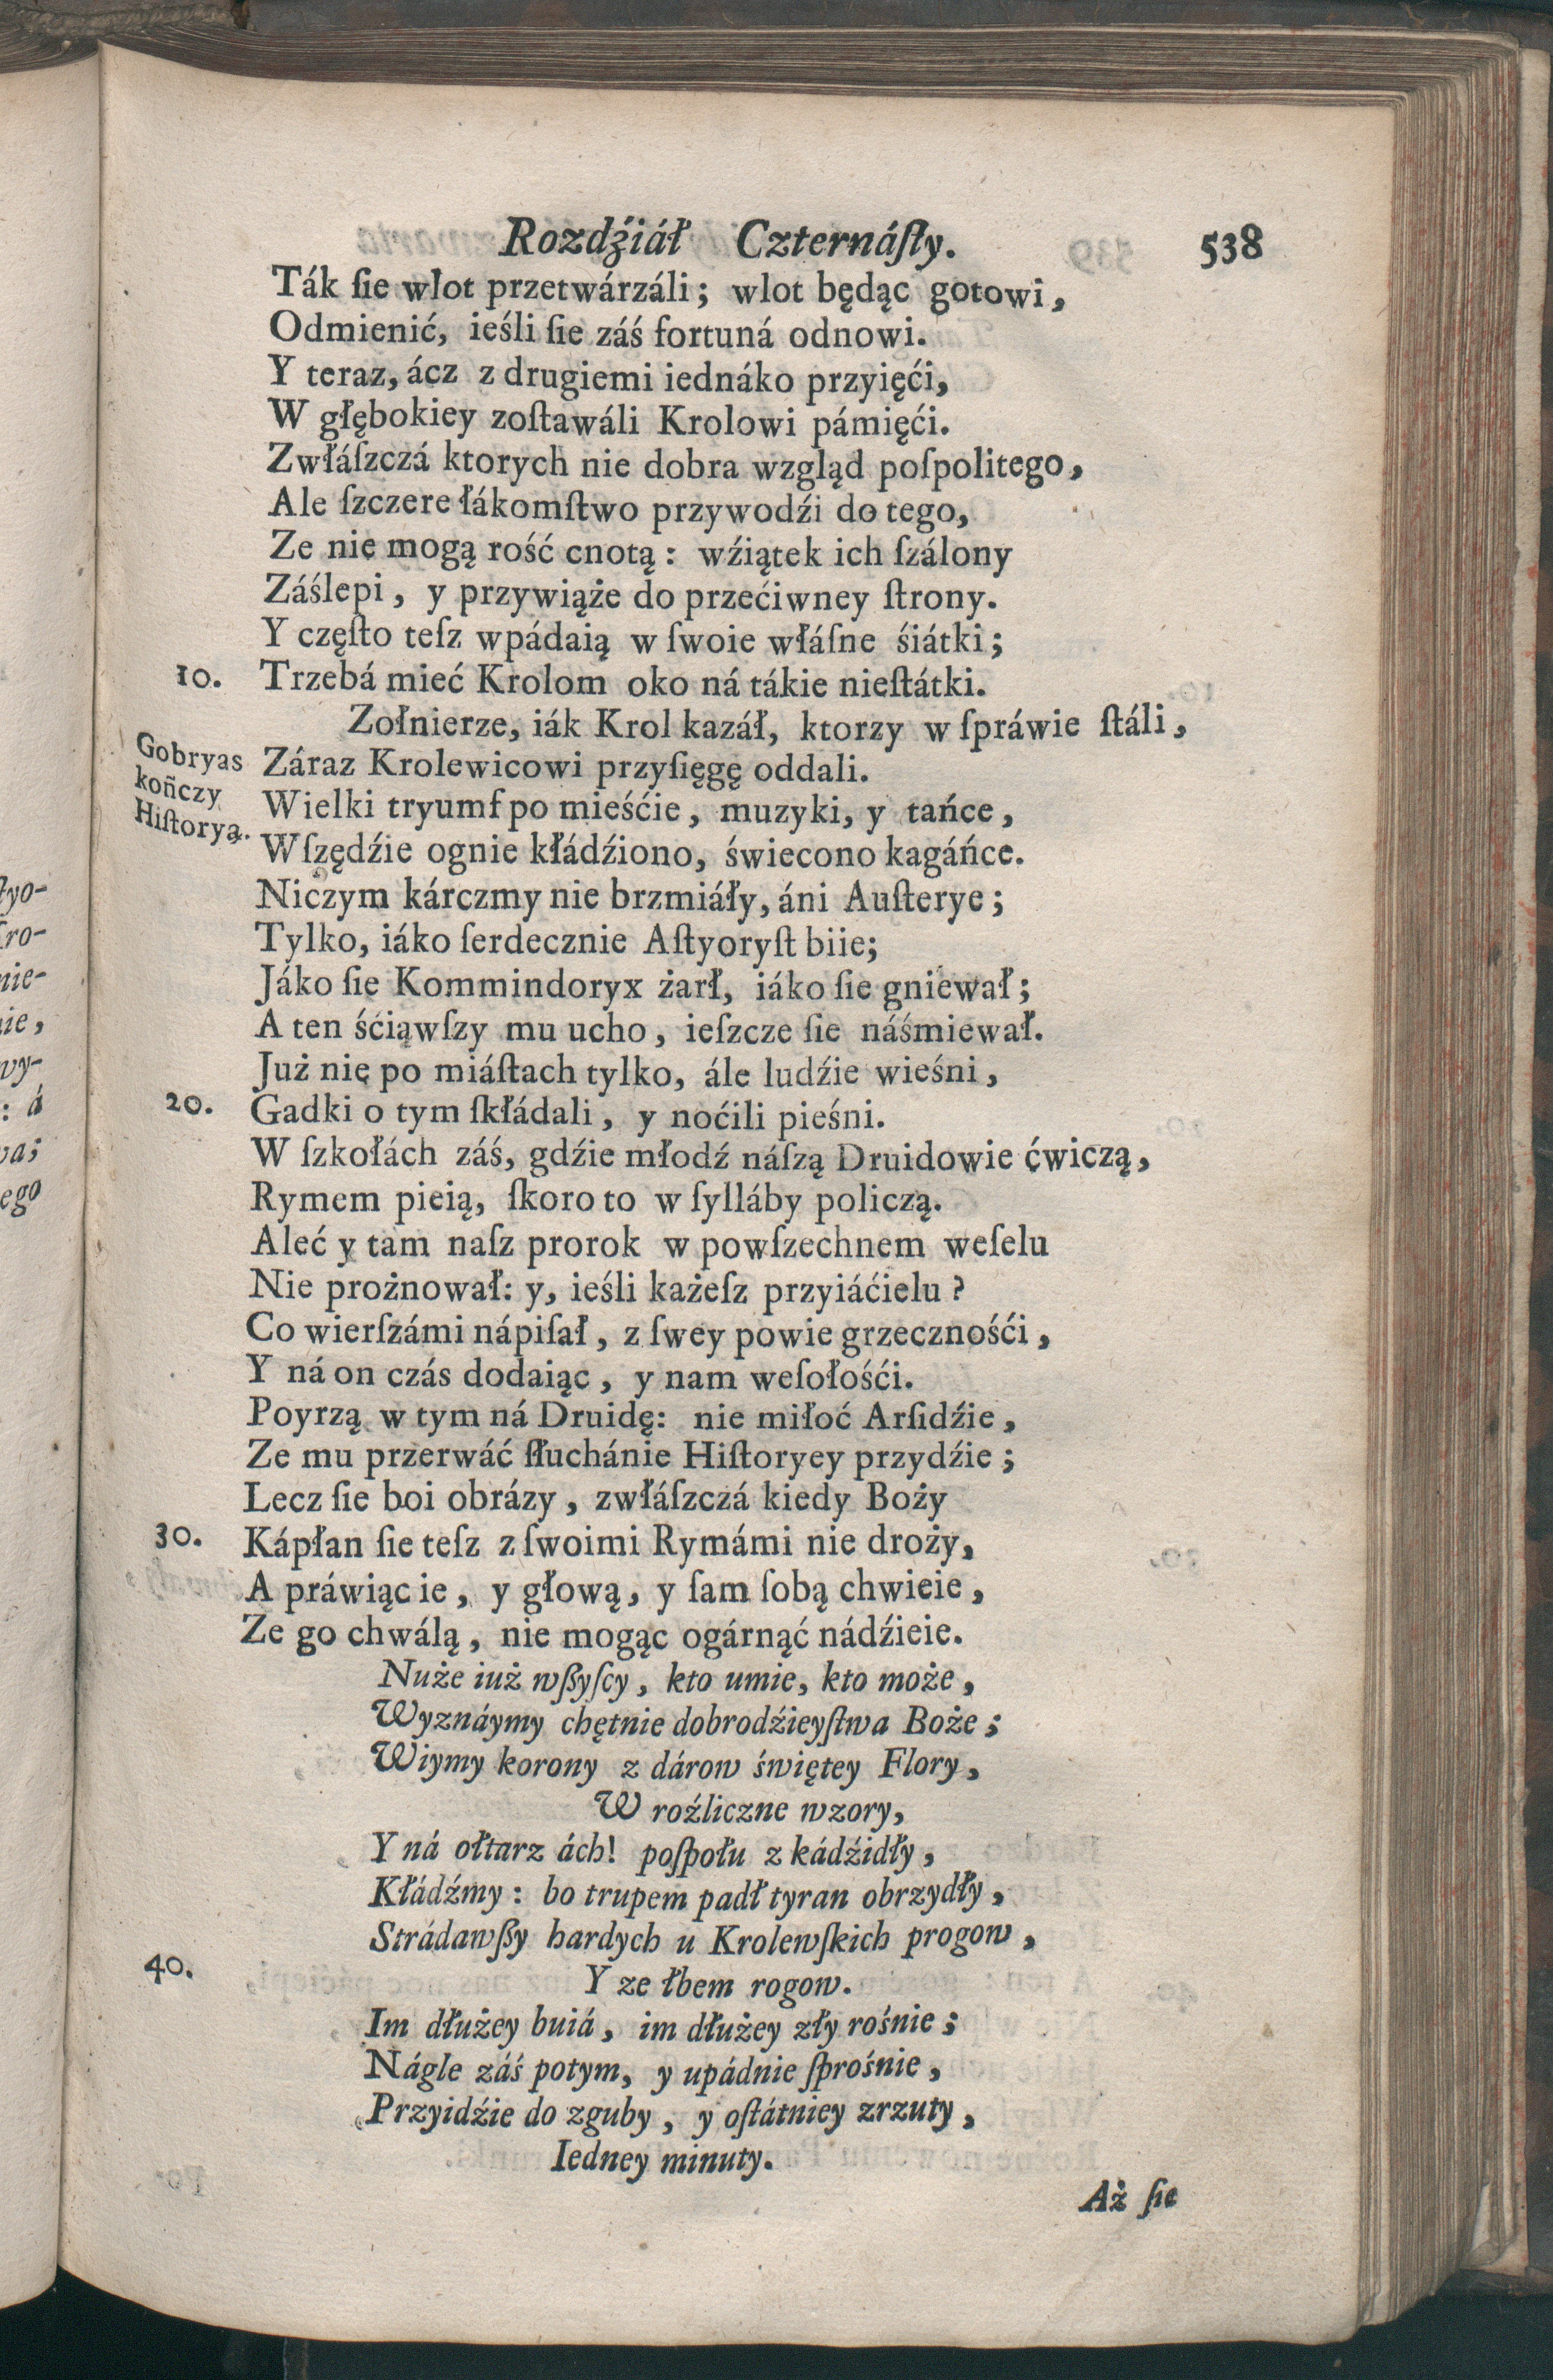 Rozdźiáł Czternáſty. 538
Ták ſie wlot przetwárzáli; wlot będąc gotowi,
Odmienić, ieśli ſie záś fortuná odnowi.
Y teraz, ácz z drugiemi iednáko przyięći,
W głębokiey zoſtawáli Krolowi pámięći.
Zwłáſzczá ktorych nie dobra wzgląd poſpolitego,
Ale ſzczere łákomſtwo przywodźi do tego,
Ze nie mogą rość cnotą: wźiątek ich ſzálony
Záślepi, y przywiąże do przećiwney ſtrony.
Y częſto teſz wpádaią w ſwoie włáſne śiátki;
10. Trzebá mieć Krolom oko ná tákie nieſtátki.
Zołnierze, iák Krol kazáł, ktorzy w ſpráwie ſtáli,
Gobryas
kończy
Hiſtoryą.
Záraz Krolewicowi przyſięgę oddali.
Wielki tryumf po mieśćie, muzyki, y tańce,
Wſzędźie ognie kłádźiono, świecono kagáńce.
Niczym kárczmy nie brzmiáły, áni Auſterye;
Tylko, iáko ſerdecznie Aſtyoryſt biie;
Jáko ſie Kommindoryx żarł, iáko ſie gniewał;
A ten śćiąwſzy mu ucho, ieſzcze ſie náśmiewał.
Już nie po miáſtach tylko, ále ludźie wieśni,
20. Gadki o tym ſkłádali, y noćili pieśni.
W ſzkołách záś, gdźie młodź náſzą Druidowie ćwiczą,
Rymem pieią, ſkoro to w ſylláby policzą.
Aleć y tam naſz prorok w powſzechnem weſelu
Nie prożnował: y, ieśli każeſz przyiáćielu?
Co wierſzámi nápiſał, z ſwey powie grzecznośći,
Y ná on czás dodaiąc, y nam weſołośći.
Poyrzą w tym ná Druidę: nie miłoć Arſidźie,
Ze mu przerwáć ſłuchánie Hiſtoryey przydźie;
Lecz ſie boi obrázy, zwłáſzczá kiedy Boży
30. Kápłan ſie teſz z ſwoimi Rymámi nie droży,
A práwiąc ie, y głową, y ſam ſobą chwieie,
Ze go chwálą, nie mogąc ogárnąć nádźieie.
Nuże iuż wßyſcy, kto umie, kto może,
Wyznáymy chętnie dobrodźieyſtwa Boże;
Wiymy korony z dárow świętey Flory,
W roźliczne wzory,
Y ná ołtarz ách! poſpołu z kádźidły,
Kłádźmy: bo trupem padł tyran obrzydły,
Strádawßy hardych u Krolewſkich progow,
40. Y ze łbem rogow.
Im dłużey buiá, im dłużey zły rośnie;
Nágle záś potym, y upádnie ſprośnie,
Przyidźie do zguby, y oſtátniey zrzuty,
Iedney minuty.
Aż ſie